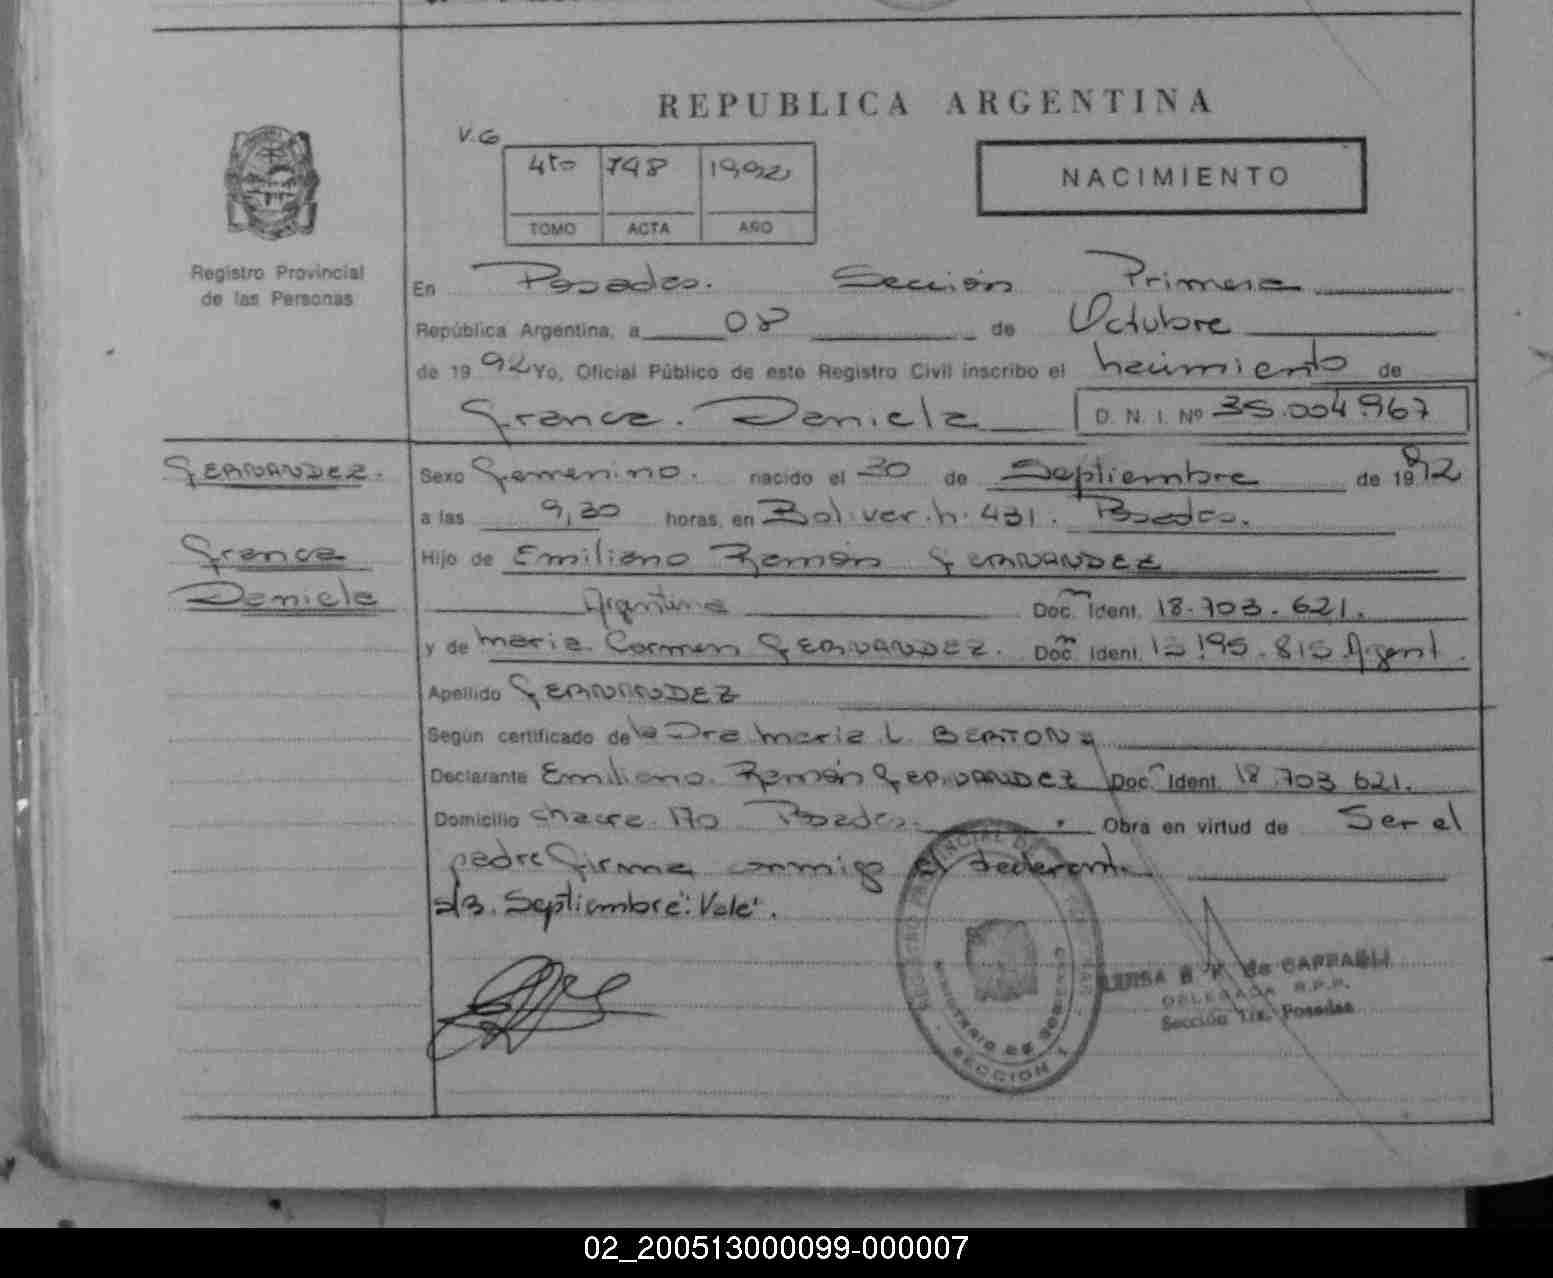 REPUBLICA ARGENTINA
V.G
4to 748 1992
TOMO ACTA AÑO
NACIMIENTO
Registro Provincial
de las Personas
En Posadas. Sección Primera
República Argentina, a 08 de Octubre
de 1992 Yo, Oficial Público de este Registro Civil inscribo el nacimiento de
Franca. Daniela D. N. I. Nº 35.004.967
FERNANDEZ.
Franca
Daniela
Sexo Femenino. nacido el 30 de Septiembre de 1992
a las 9,30 horas, en Bolivar. h. 431. Posadas.
Hijo de Emiliano Ramón FERNANDEZ
Argentina Doc. Ident. 18.703.621.
y de Maria Carmen FERNANDEZ. Doc. Ident. Argent.
Apellido FERNANDEZ
Según certificado de la Dra Maria L. BERTONY
Declarante Emiliano Ramón FERNANDEZ Doc. Ident. 18.703.621.
Domicilio chacra 170 Posadas. Obra en virtud de Ser el
padre firma conmigo el declarante
s/b. Septiembre: Vale.
REGISTRO PROVINCIAL DE LAS
MINISTERIO DE GOBIERNO
SECCION 1
de
DELEGADA R.P.P.
Sección 1ra. Posadas
02_200513000099-000007